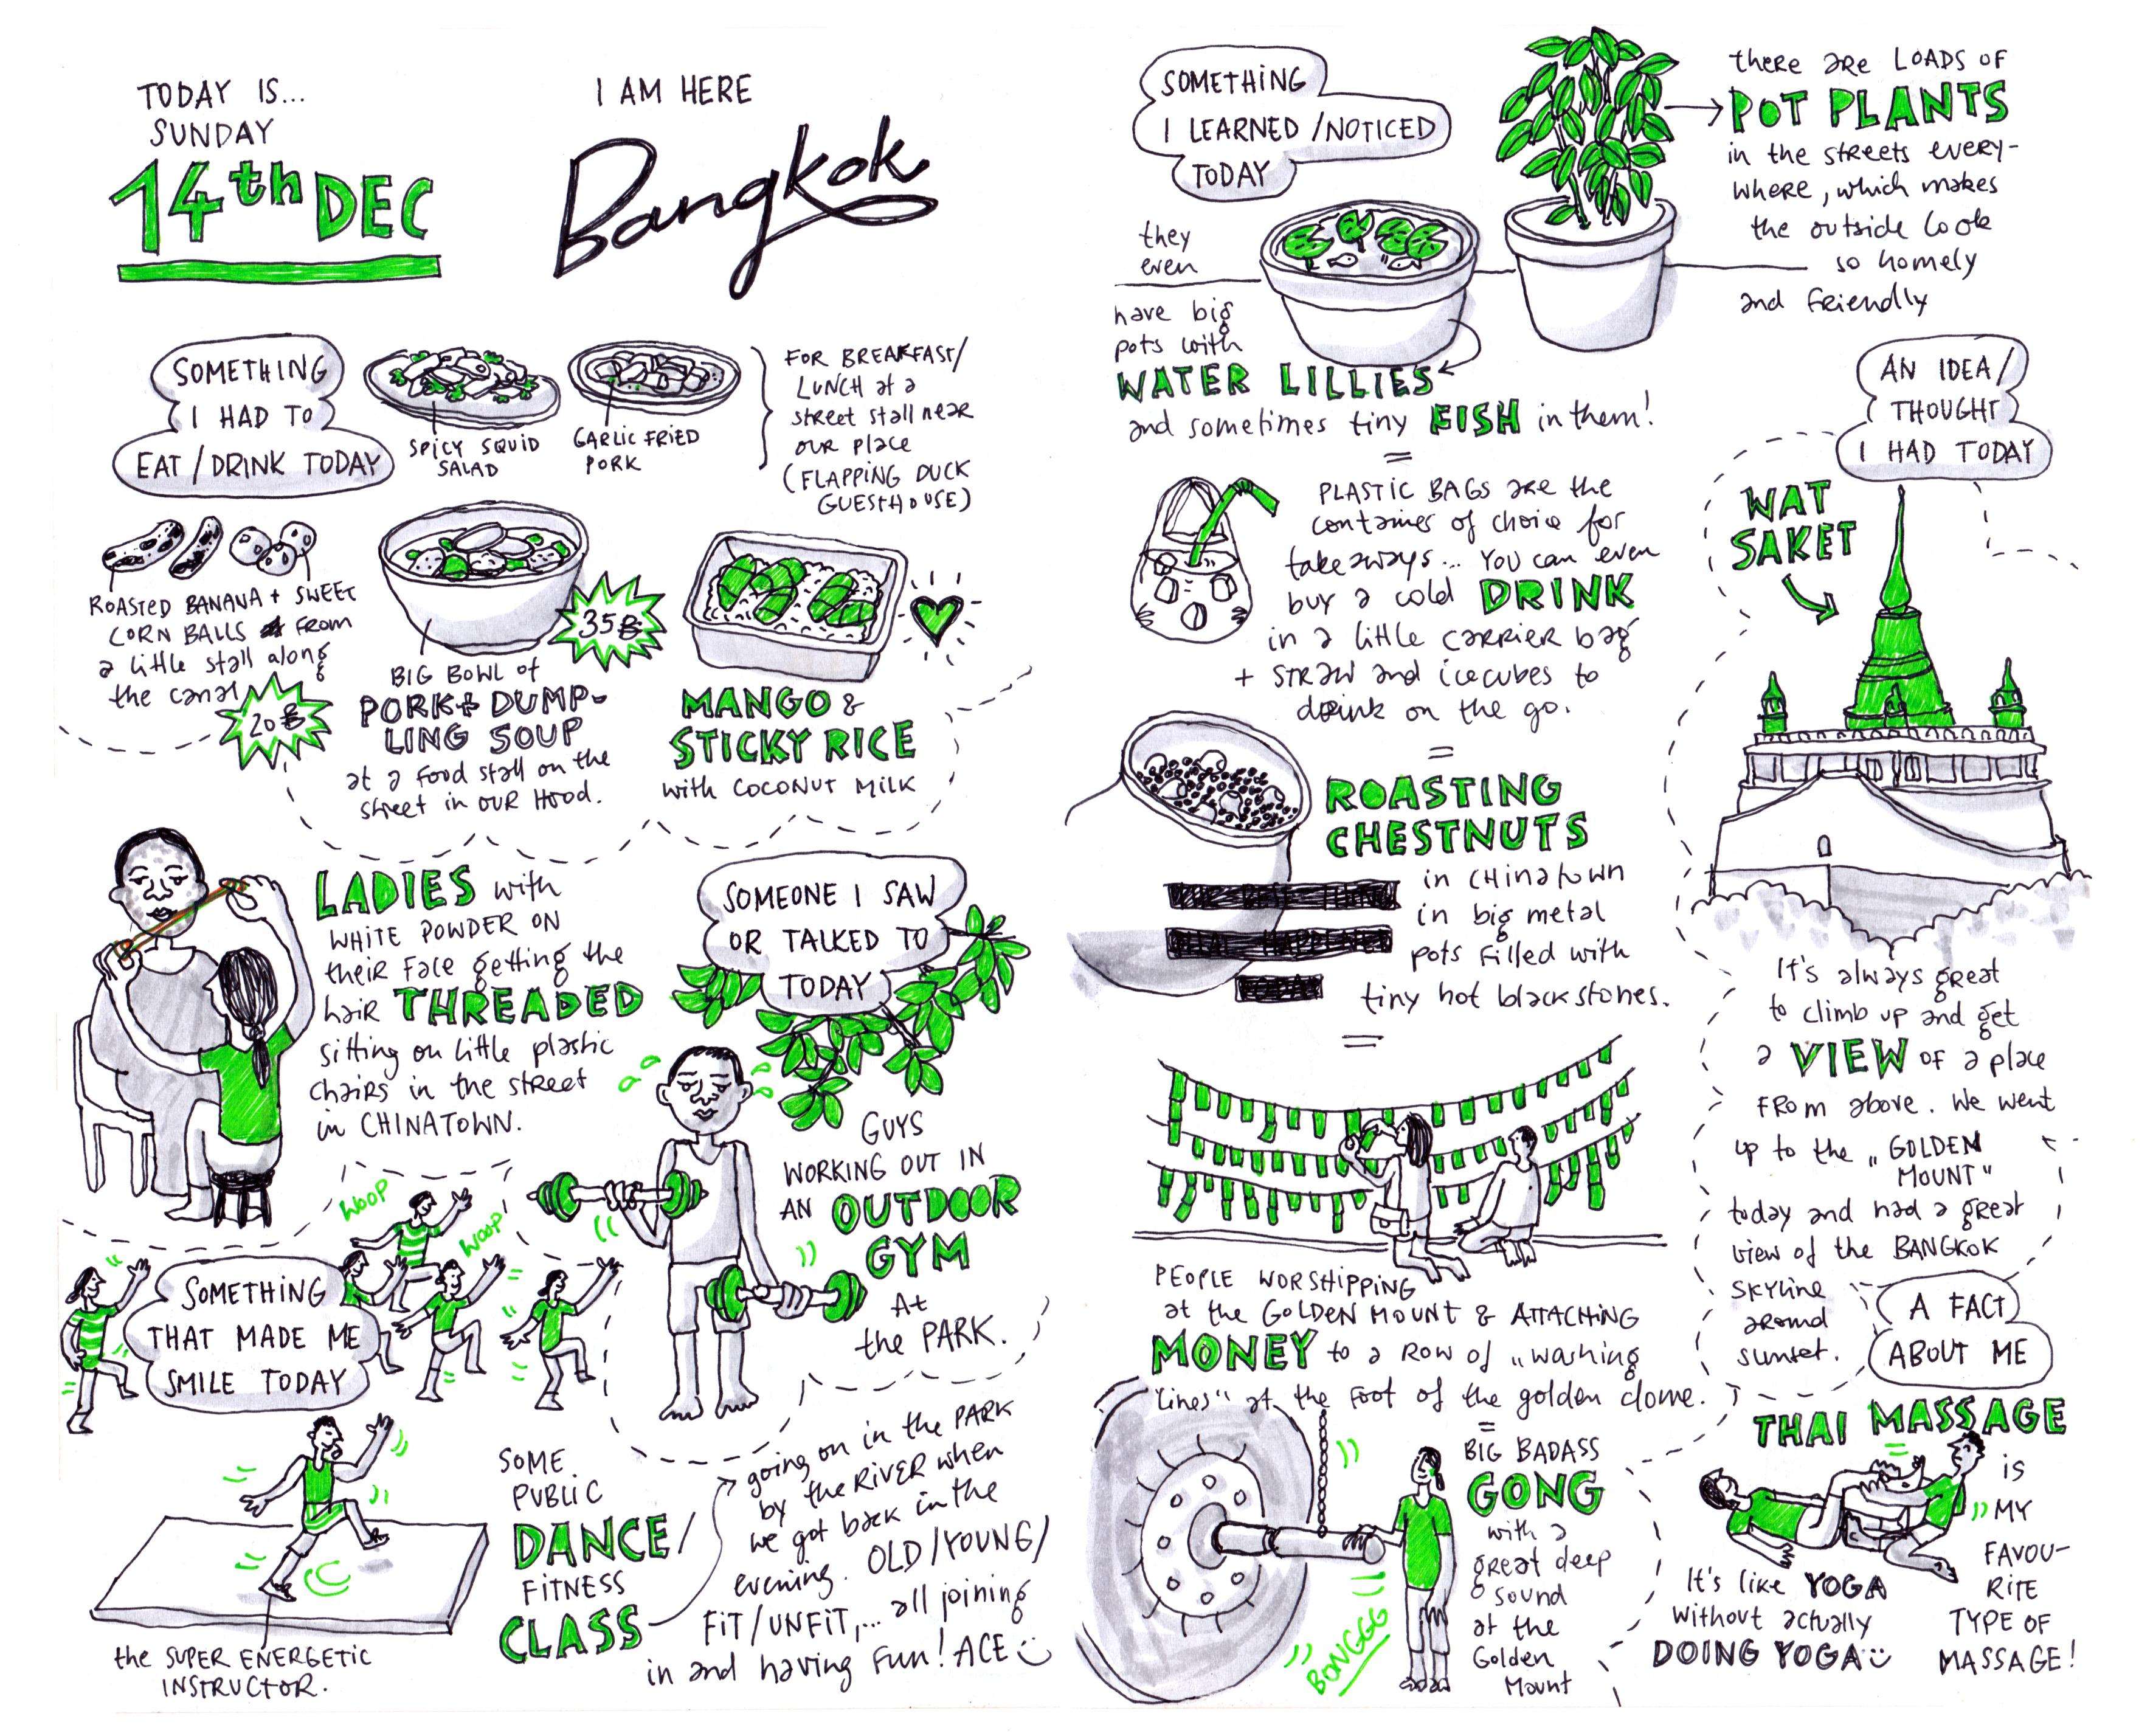 TODAY IS...
SUNDAY
14th DEC
I AM HERE
Bangkok
SOMETHING
I HAD TO
EAT / DRINK TODAY
SPICY SQUID
SALAD
GARLIC FRIED
PORK
FOR BREAKFAST/
LUNCH at a
street stall near
our place
(FLAPPING DUCK
GUESTHOUSE)
ROASTED BANANA + SWEET
CORN BALLS FROM
a little stall along
the canal
20฿
BIG BOWL of
PORK + DUMP-
LING SOUP
at a food stall on the
street in our Hood.
35฿
MANGO &
STICKY RICE
with COCONUT MILK
LADIES with
WHITE POWDER ON
their face getting the
hair THREADED
sitting on little plastic
chairs in the street
in CHINATOWN.
SOMEONE I SAW
OR TALKED TO
TODAY
GUYS
WORKING OUT IN
AN OUTDOOR
GYM
At
the PARK.
WOOP
WOOP
SOMETHING
THAT MADE ME
SMILE TODAY
the SUPER ENERGETIC
INSTRUCTOR.
SOME
PUBLIC
DANCE/
FITNESS
CLASS
going on in the PARK
by the RIVER when
we got back in the
evening. OLD/YOUNG/
FIT/UNFIT,... all joining
in and having fun! ACE
SOMETHING
I LEARNED /NOTICED
TODAY
there are LOADS OF
POT PLANTS
in the streets every-
where, which makes
the outside look
so homely
and friendly
they
even
have big
pots with
WATER LILLIES
and sometimes tiny FISH in them!
=
PLASTIC BAGS are the
container of choice for
takeaways... You can even
buy a cold DRINK
in a little carrier bag
+ straw and icecubes to
drink on the go.
=
ROASTING
CHESTNUTS
in Chinatown
in big metal
pots filled with
tiny hot black stones.
=
PEOPLE WORSHIPPING
at the GOLDEN MOUNT & ATTACHING
MONEY to a row of „washing
lines" at the foot of the golden dome.
=
BIG BADASS
GONG
with a
great deep
sound
at the
Golden
Mount
BONGGG
AN IDEA/
THOUGHT
I HAD TODAY
WAT
SAKET
It's always great
to climb up and get
a VIEW of a place
FROM above. We went
up to the „GOLDEN
MOUNT"
today and had a great
view of the BANGKOK
skyline
around
sunset.
A FACT
ABOUT ME
THAI MASSAGE
is
MY
FAVOU-
RITE
TYPE OF
MASSAGE!
It's like YOGA
without actually
DOING YOGA